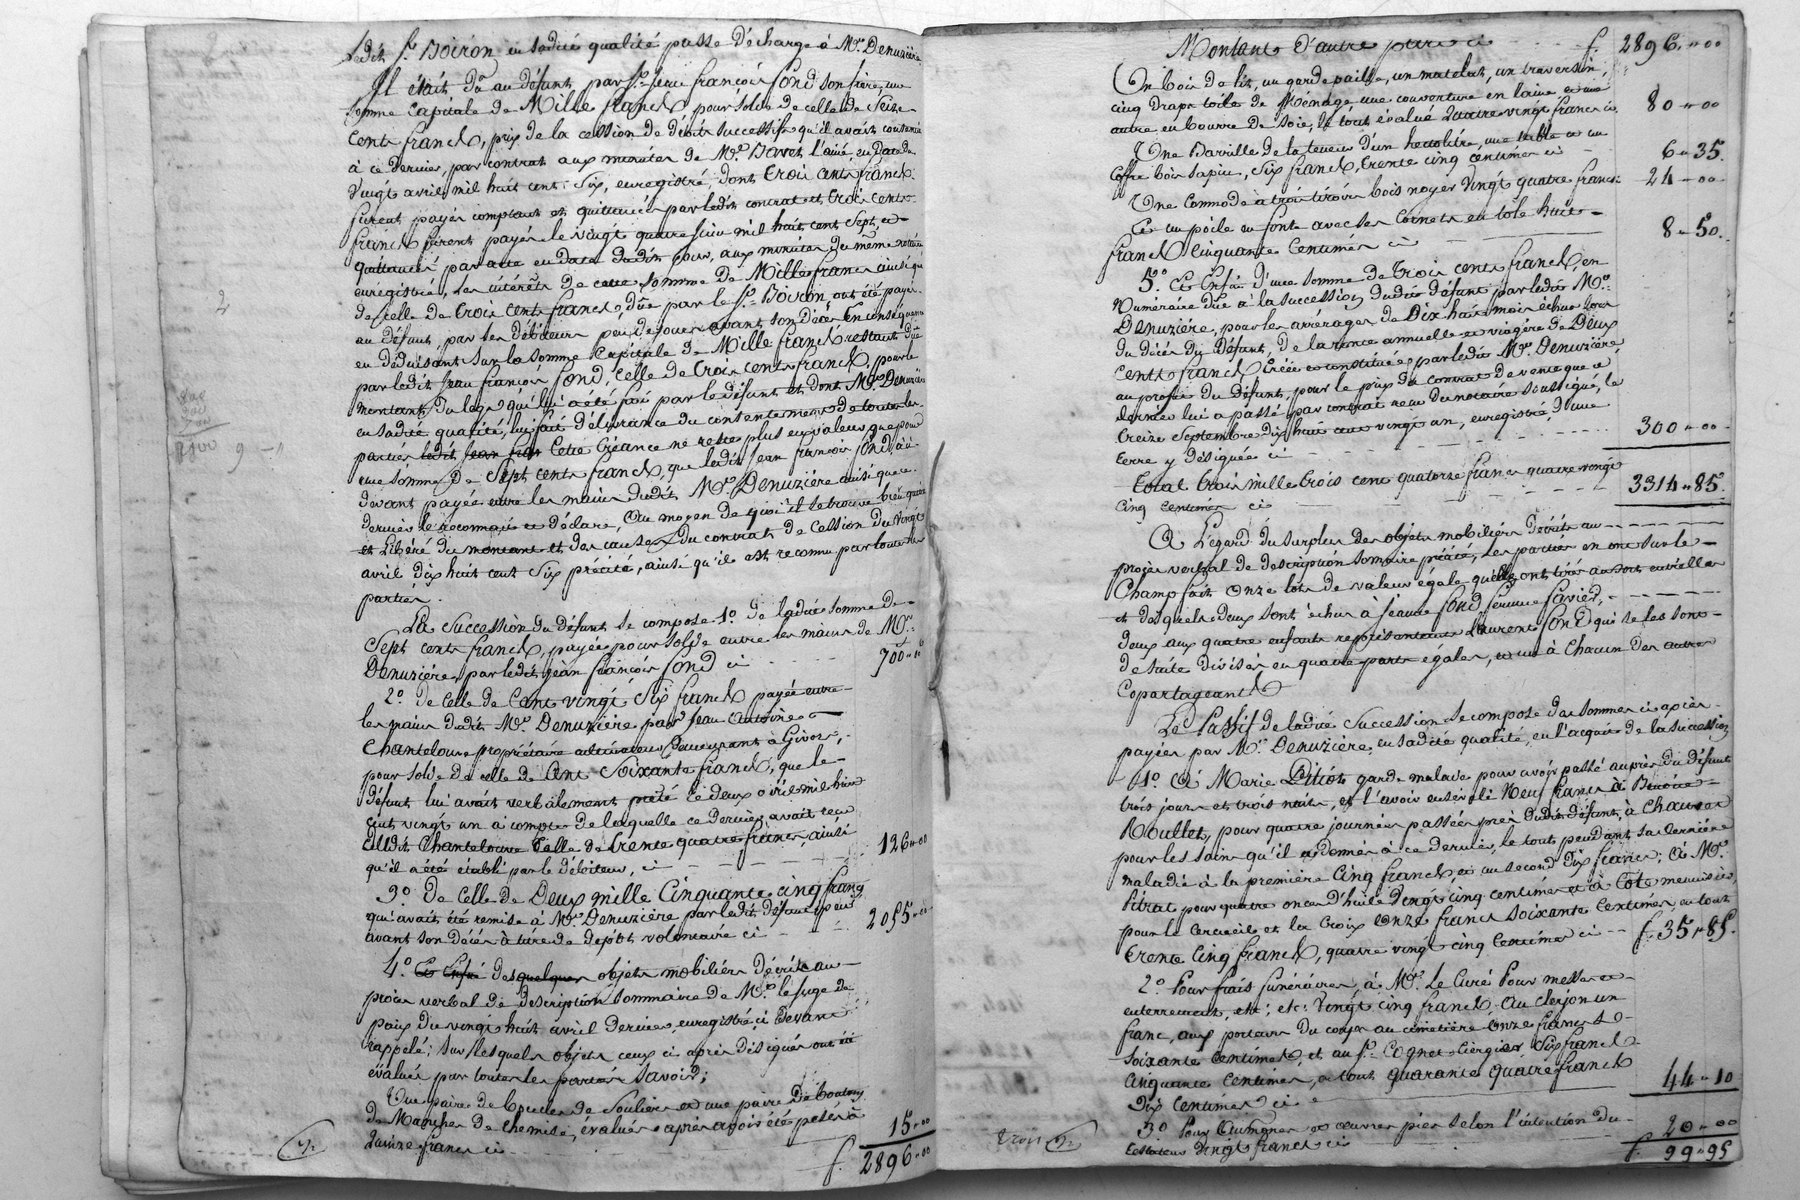 Ledit Sr. Boiron en sadite qualité passe décharge à Me. Denuzière
Il était dû au défunt par Sr. Jean françois fond son frère, une
somme Capitale de Mille francs, pour solde de celle de Seize
Cents francs, prix de la cession de droits successifs qu'il avait consentie
à ce dernier, par contrat aux minutes de Me. Bavet l'ainé, en date du
Vingt avril mil huit cent Six, enregistré, dont trois cents francs
furent payés comptant et quittancés par ledit contrat et trois cents
francs furent payés le vingt quatre juin mil huit cent Sept, et
quittancés par acte en date dudit jour, aux minutes du même notaire
enregistré, Les intérêts de cette somme de Mille francs ainsi que
de celle de trois cents francs, dûe par le Sr. Boiron, ont été payés
au défunt, par ses débiteurs peu de jours avant son décès En conséquence
en déduisant sur la somme Capitale de Mille francs restant due
par ledit Jean françois fond, celle de trois cents francs, pour le
montant du legs qui lui a été fait par le défunt et dont Me. Denuzière
en sadite qualité, lui fait délivrance du consentement de toutes les
parties ledit Jean fran Cette Créance ne reste plus en valeur que pour
une somme de Sept cents francs, que ledit Jean françois fond, a ci
devant payée entre les mains dudit Me. Denuzière ainsi que ce
dernier le reconnait et déclare, Au moyen de quoi il se trouve bien quitte
et Libéré du montant et des causes du contrat de Cession du Vingt
avril dix huit cent Six précité, ainsi qu'il est reconnu par toutes les
parties.
La Succession du défunt se compose 1o. de ladite somme de
Sept cents francs, payée pour solde entre les mains de Me.
Denuzière, par ledit Jean françois fond ci 700 " 00
2o. de Celle de Cent vingt Six francs payée entre
les mains dudit Me. Denuzière par Jean Antoine
Chantelouve propriétaire cultivateur Demeurant à Givors,
pour solde de celle de Cent Soixante francs, que le
défunt lui avait verbalement prêté le deux avril mil huit
cent vingt un à compte de laquelle ce dernier avait reçu
dudit Chantelouve Celle de trente quatre francs, ainsi
qu'il a été établi par le débiteur, ci 126 " 00
3o. De Celle de Deux mille Cinquante cinq francs
qu'avait été remise à Me. Denuzière par ledit défunt peu
avant son Décès à titre de dépôt volontaire ci 2055 " 00
4o. Et Enfin des quelques objets mobiliers décrits au
procès verbal de description Sommaire de Mr. le Juge de
paix du vingt huit avril dernier, enregistré, ci devant
rappelé; sur lesquels objets ceux ci après désignés ont été
évalués par toutes les parties Savoir;
Une paire de boucles de Souliers et une paire de boutons
de Manches de Chemise, évalués après avoir été pesés à
quinze francs ci 15 " 00
f. 2896 " 00
2
9 - "
Montant d'autre part ci f. 2896 " 00
Un bois de lit, un garde paille, un matelat, un traversin,
cinq draps toile de Ménage, une couverture en laine et une
autre en bourre de soie, le tout évalué Quatre vingt francs ci 80 " 00
Une Barrille de la teneur d'un hectolitre, une table et un
Coffre bois sapin, Six francs, trente cinq centimes ci 6 " 35.
Une Commode à trois tiroirs bois noyer Vingt quatre francs 24 " 00
Et un poile en fonte avec ses Cornets en tôle huit
francs Cinquante Centimes ci 8 " 50.
5o. Et Enfin d'une somme de Trois cents francs, en
Numéraire dûe à la succession dudit défunt par ledit Me.
Denuzière, pour les arrérages de Dix huit mois échus lors
du décès du Défunt, de la rente annuelle et viagère de Deux
Cents francs créée et constituée par ledit Me. Denuzière
au profit du Défunt, pour le prix du contrat de vente que ce
dernier lui a passé par contrat reçu du notaire soussigné, le
treize Septembre dix huit cent vingt un, enregistré d'une
terre y désignée ci 300 " 00
Total trois mille trois cent quatorze francs quatre vingt
cinq centimes ci 3314 " 85
A l'égard du surplus des objets mobiliers décrits au
procès verbal de description sommaire précité, les parties en ont sur le
Champ fait onze lots de valeur égale qu'elles ont tirés au sort entr'elles
et desquels deux sont échus à Jeanne fond femme
deux aux quatre enfants représentans Laurent fond qui se les sont
de suite divisés en quatre parts égales, et un à Chacun des autres
Copartageants
Le Passif de ladite Succession se compose des sommes ci après
payées par Me. Denuzière, en sadite qualité, en l'acquit de la succession
1o. A Marie garde malade pour avoir passé auprès du défunt
trois jours et trois nuits, et l'avoir enseveli Neuf francs à Benoite
Roullet, pour quatre journées passées près dudit défunt, à
pour les soins qu'il a donnés à ce dernier, le tout pendant sa dernière
maladie à la première Cinq francs, et au second Dix francs; à Mr.
pour quatre onces d'huile Vingt cinq centimes et à Côte menuisier,
pour le Cercueil et la Croix Onze francs soixante Centimes en tout
trente Cinq francs, quatre vingt cinq Centimes ci f. 35 " 85.
2o. Pour frais funéraires, à Mr. Le Curé Pour messe et
enterrement, etc; etc: Vingt cinq francs, Au clerjon un
franc, aux porteurs du corps au cimetière onze francs
soixante Centimes, et au Sr. Cognet Ciergier, Six francs
Cinquante Centimes, en tout quarante quatre francs
dix Centimes ci 44 " 10
3o. Pour Aumones et œuvres pies selon l'intention du
testateur Vingt francs ci 20 " 00
f. 99 " 95
trois